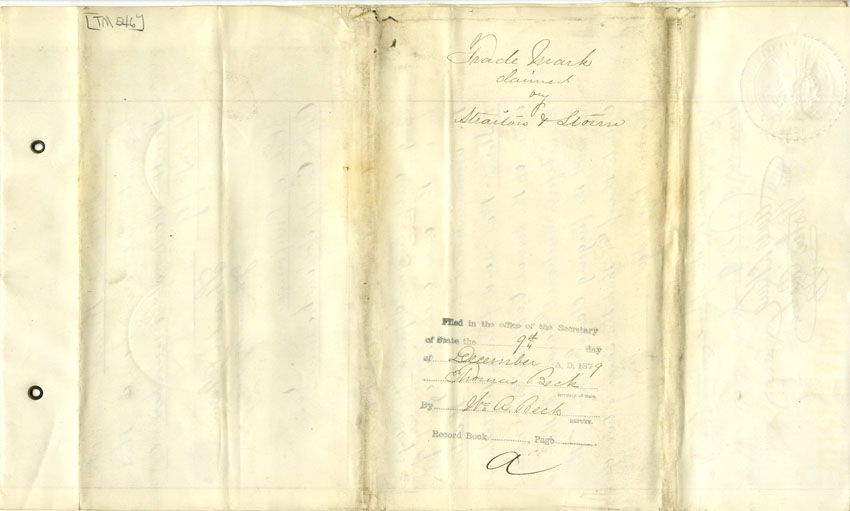 [TM 546]
Trade Mark
claimed
by
Straiton & Storm
Filed in the office of the Secretary
of State the 9th day
of December A. D. 1879
Thomas Beck
Secretary of State.
By Wm C. Beck
DEPUTY.
Record Book , Page
a